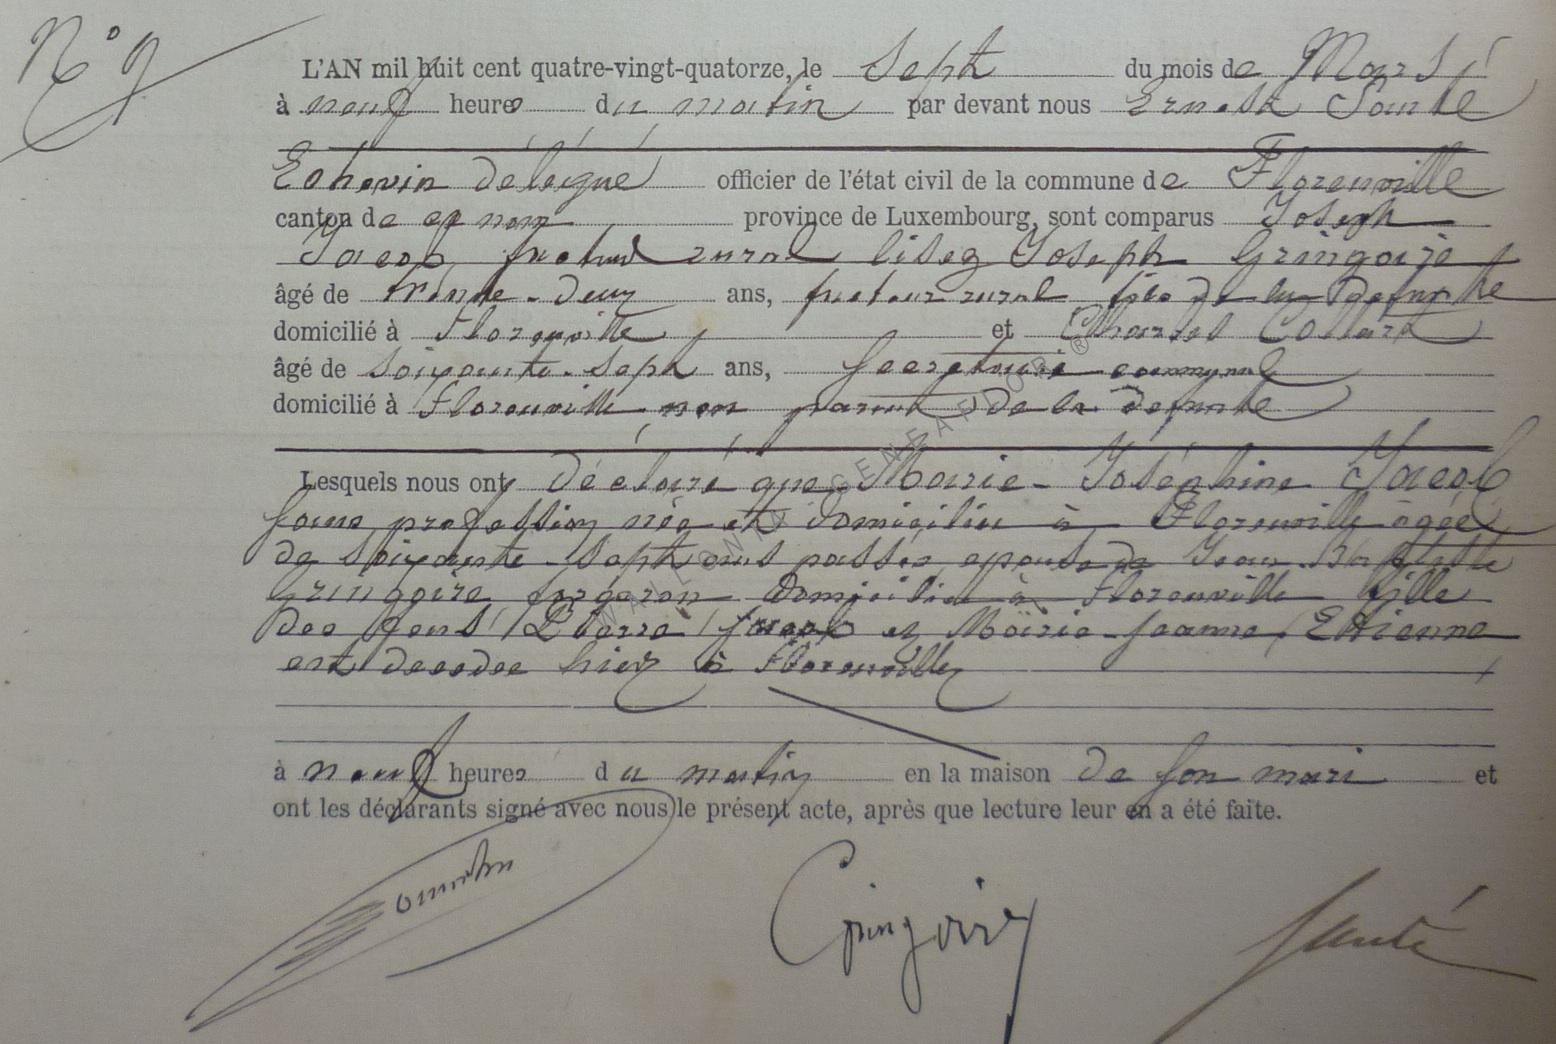 N° 9
L'AN mil huit cent quatre-vingt-quatorze, le Sept du mois de Mars
à neuf heures du matin par devant nous Ernest Santé
Echevin délégué officier de l'état civil de la commune de Florenville
canton de ce nom province de Luxembourg, sont comparus Joseph
Jacob facteur rural lisez Joseph Gringoire
âgé de trente-deux ans, facteur rural fils de la défunte
domicilié à Florenville et Charles Collart
âgé de soixante-sept ans, Secrétaire communal
domicilié à Florenville non parent de la défunte
Lesquels nous ont déclaré que Marie-Joséphine Jacob
sans profession née et domiciliée à Florenville âgée
de soixante-sept ans passés épouse de Jean-Baptiste
Gringoire forgeron domicilié à Florenville fille
des feus Pierre Jacob et Marie-Jeanne Etienne
est décédée hier à Florenville
à neuf heures du matin en la maison de son mari et
ont les déclarants signé avec nous le présent acte, après que lecture leur en a été faite.
Gringoire Santé